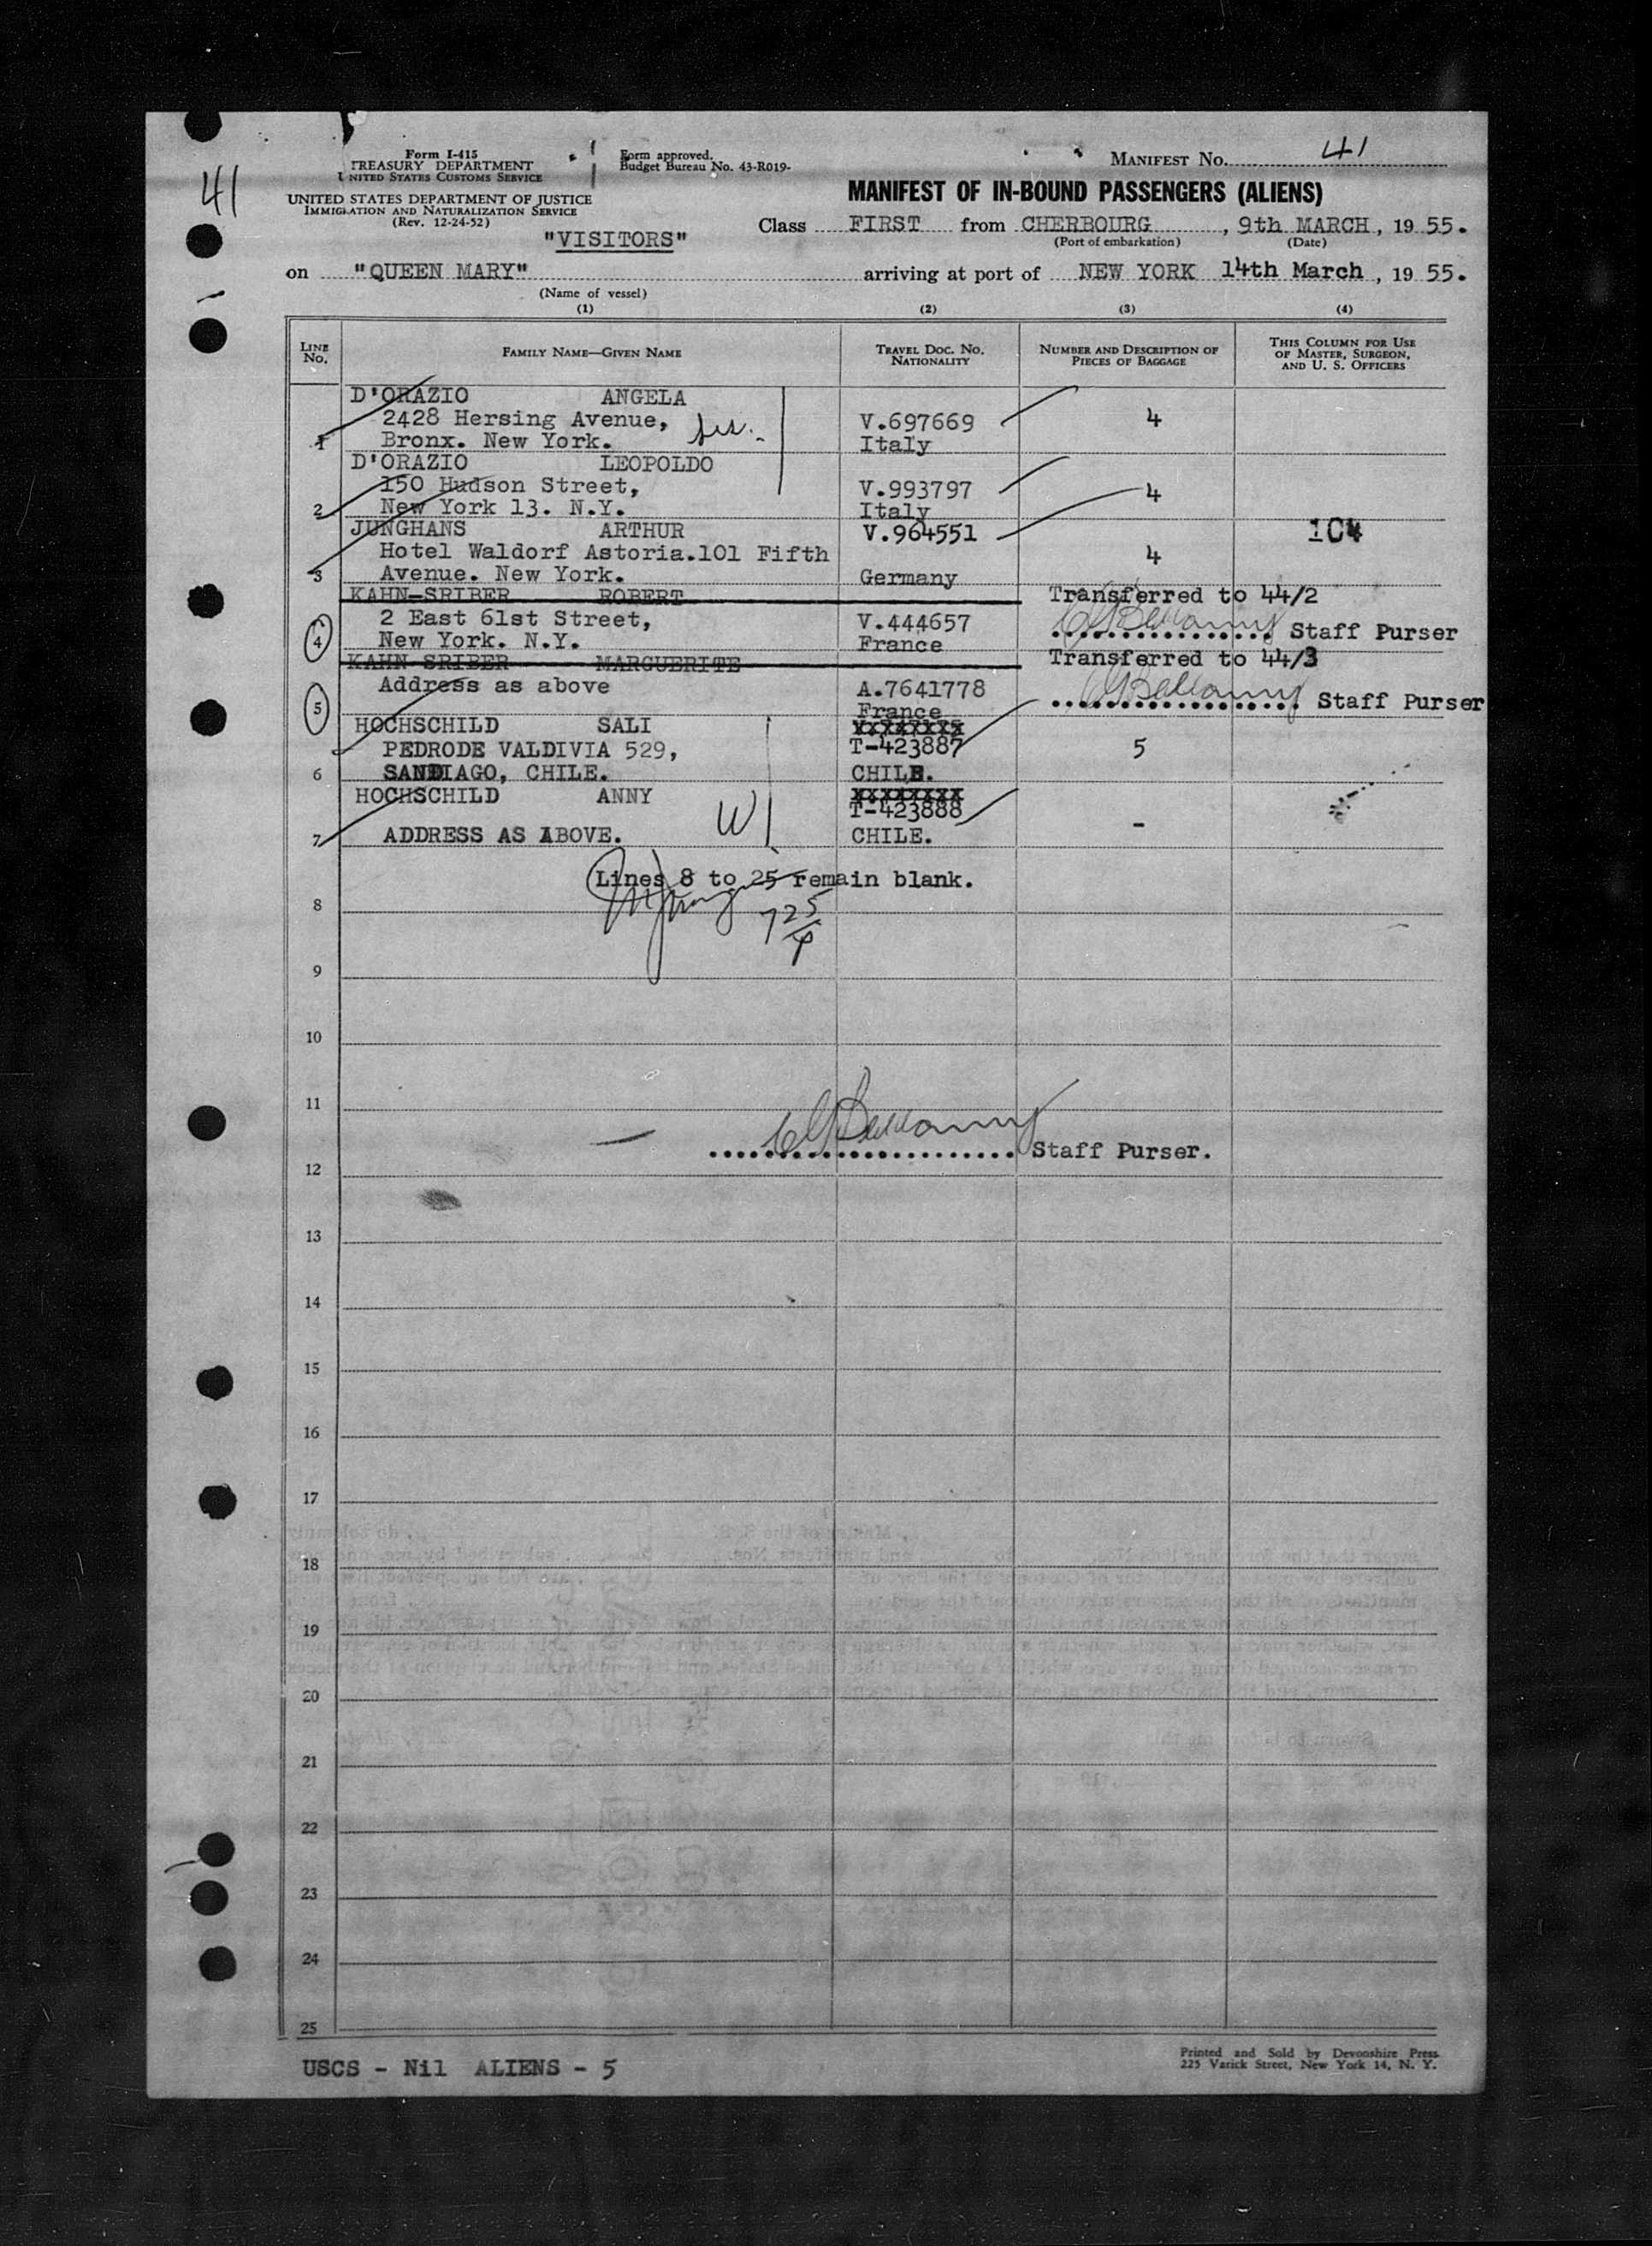 41
Form I-415
TREASURY DEPARTMENT
UNITED STATES CUSTOMS SERVICE
UNITED STATES DEPARTMENT OF JUSTICE
IMMIGRATION AND NATURALIZATION SERVICE
(Rev. 12-24-52)
Form approved.
Budget Bureau No. 43-R019-
MANIFEST No. 41
MANIFEST OF IN-BOUND PASSENGERS (ALIENS)
"VISITORS"
Class FIRST from CHERBOURG, 9th MARCH, 19 55.
(Port of embarkation) (Date)
on "QUEEN MARY" arriving at port of NEW YORK 14th March, 19 55.
(Name of vessel)
(1) (2) (3) (4)
LINE No. FAMILY NAME—GIVEN NAME TRAVEL DOC. NO. NATIONALITY NUMBER AND DESCRIPTION OF PIECES OF BAGGAGE THIS COLUMN FOR USE OF MASTER, SURGEON, AND U. S. OFFICERS
D'ORAZIO ANGELA
2428 Hersing Avenue, V.697669 4
1 Bronx. New York. Italy
D'ORAZIO LEOPOLDO
150 Hudson Street, V.993797 4
2 New York 13. N.Y. Italy
JUNGHANS ARTHUR V.964551 104
Hotel Waldorf Astoria.101 Fifth 4
3 Avenue. New York. Germany
KAHN-SRIBER ROBERT Transferred to 44/2
2 East 61st Street, V.444657 Staff Purser
4 New York. N.Y. France
KAHN SRIBER MARGUERITE Transferred to 44/3
Address as above A.7641778 Staff Purser
5 France
HOCHSCHILD SALI
PEDRODE VALDIVIA 529, T-423887 5
6 SANDIAGO, CHILE. CHILE.
HOCHSCHILD ANNY XXXXXXXX
T-423888
7 ADDRESS AS ABOVE. W CHILE. -
Lines 8 to 25 remain blank.
8
9
10
11
Staff Purser.
12
13
14
15
16
17
18
19
20
21
22
23
24
25
USCS - Nil ALIENS - 5
Printed and Sold by Devonshire Press
225 Varick Street, New York 14, N. Y.